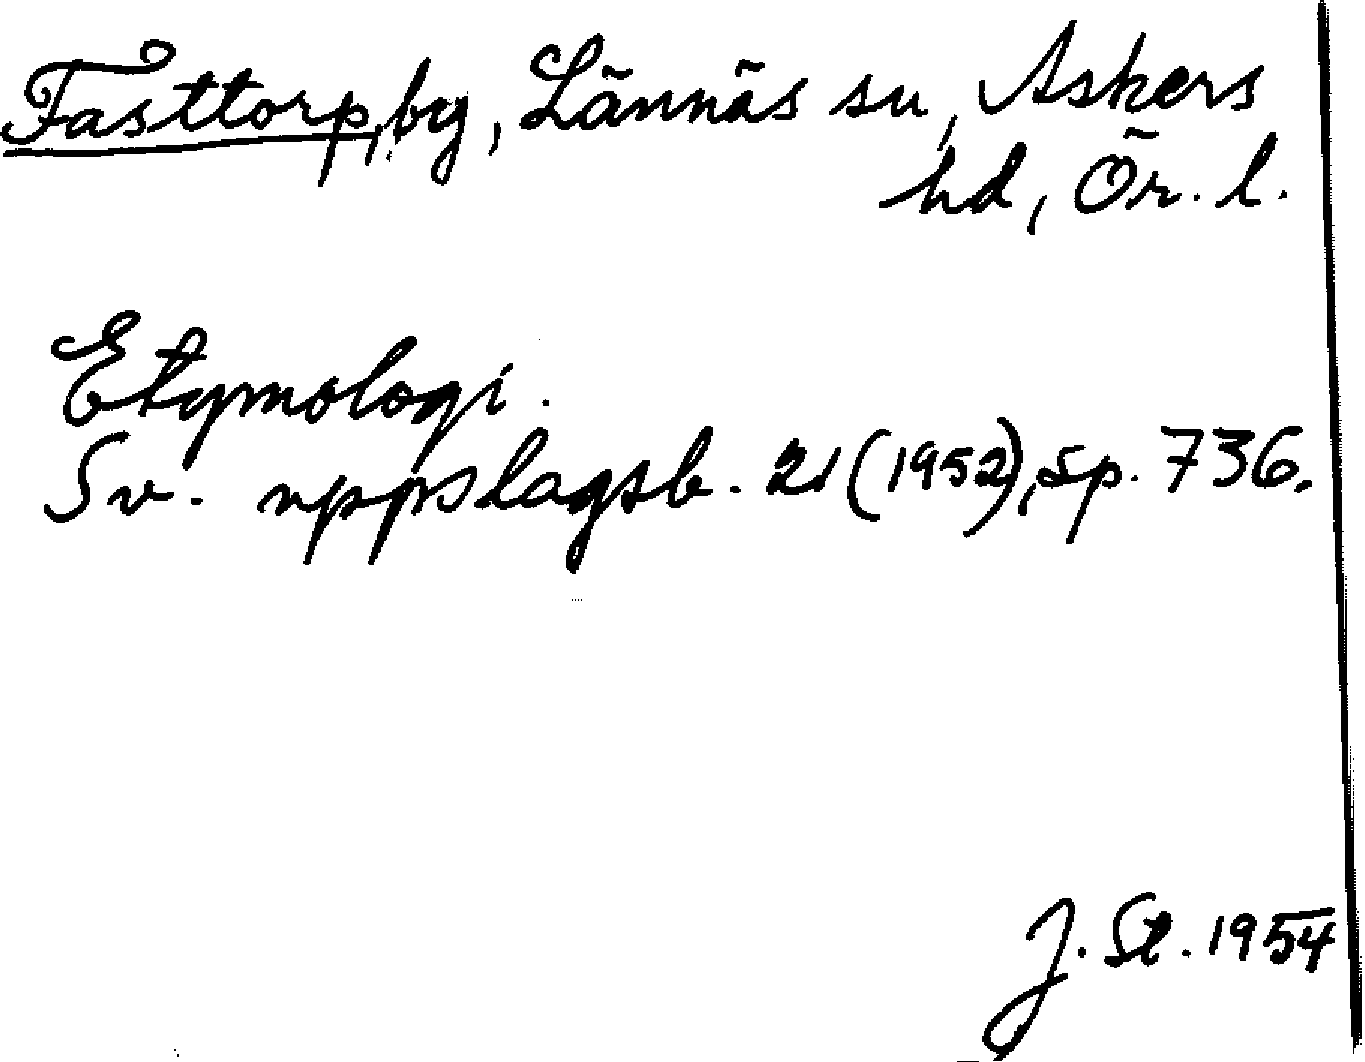 Fasttorp, by, Lännäs sn, Askers
hd, Ör. l.
Etymologi.
Sv. uppslagsb. 21 (1952), sp. 736.
J. St. 1954